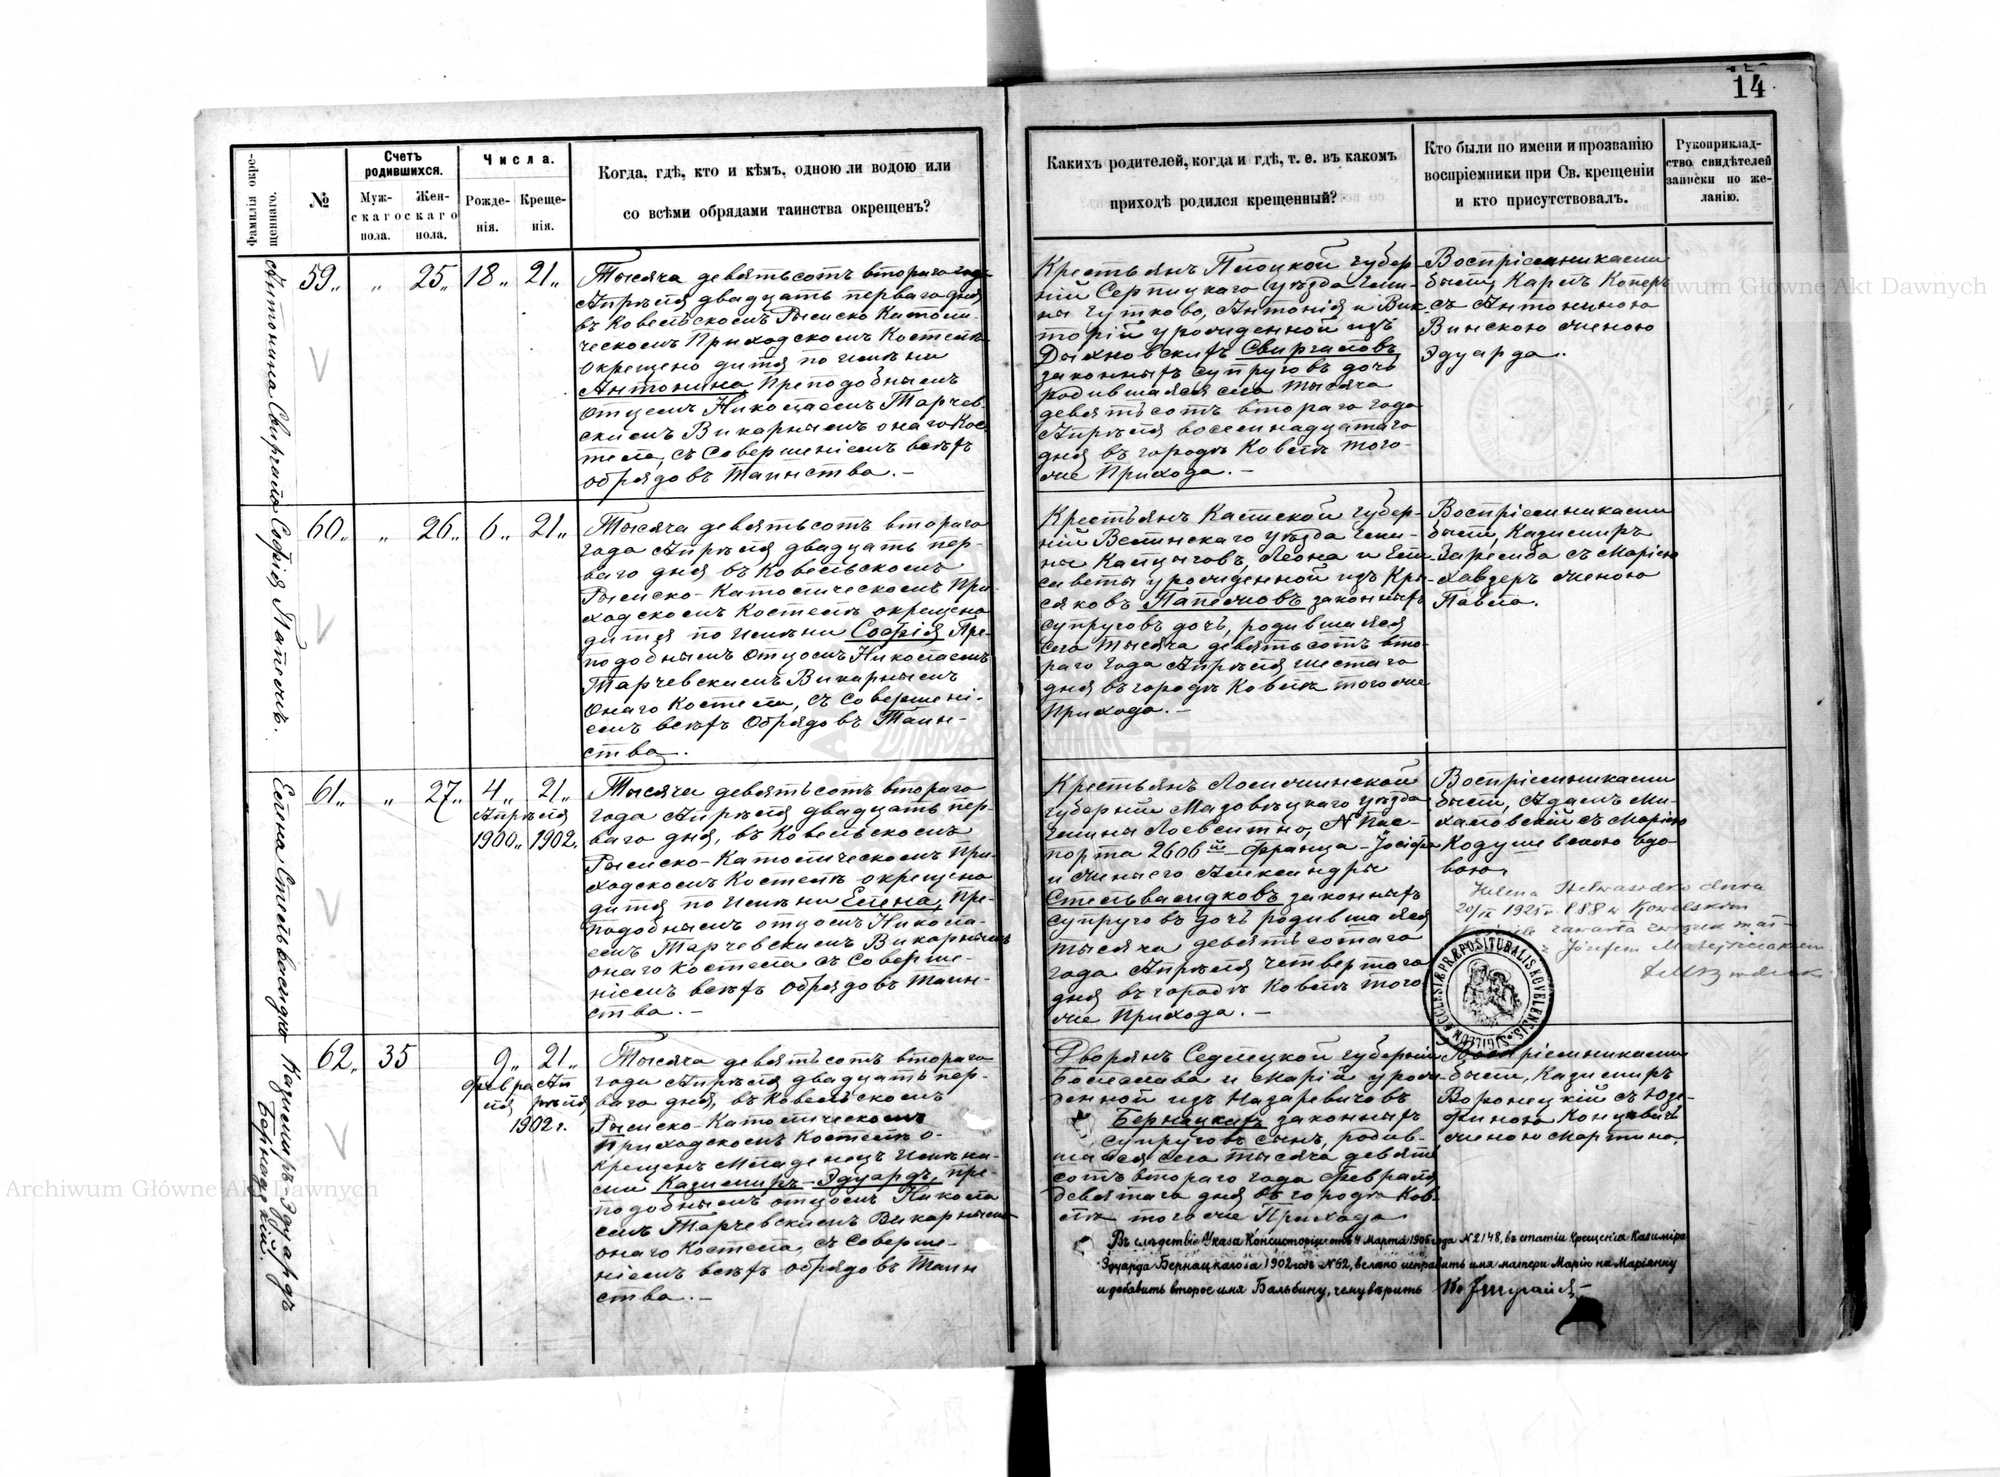 14
Фамилія окре-
щеннаго.
№
Счетъ
родившихся.
Муж-
скаго
пола.
Жен-
скаго
пола.
Числа.
Рожде-
нія.
Креще-
нія.
Когда, гдѣ, кто и кѣмъ, одною ли водою или
со всѣми обрядами таинства окрещенъ?
Какихъ родителей, когда и гдѣ, т. е. въ какомъ
приходѣ родился крещенный?
Кто были по имени и прозванію
воспріемники при Св. крещеніи
и кто присутствовалъ.
Рукоприклад-
ство свидѣтелей
записки по же-
ланію.
Антонина Свиргало
59 „ 25 18 21
Тысяча девятьсотъ втораго года
Апрѣля двадцать перваго дня
въ Ковельскомъ Римско Католи-
ческомъ Приходскомъ Костелѣ
окрещено дитя по имени
Антонина Преподобнымъ
отцемъ Николаемъ Тарчев-
скимъ Викарнымъ онаго Кос-
тела, съ совершеніемъ всѣхъ
обрядовъ Таинства. –
Крестьянъ Плоцкой губер-
ніи Серпецкаго уѣзда гми-
ны Гутково, Антонія и Вик-
торіи урожденной изъ
Дыхновскихъ Свиргаловъ
законныхъ супруговъ дочь
родившаяся сего тысяча
девятьсотъ втораго года
Апрѣля восемнадцатаго
дня въ городѣ Ковелѣ того-
же Прихода. –
Воспріемниками
были, Карлъ Коперъ
съ Антониною
Винскою женою
Эдуарда.
София Папежъ.
60 „ 26 6 21
Тысяча девятьсотъ втораго
года Апрѣля двадцать пер-
ваго дня въ Ковельскомъ
Римско-Католическомъ При-
ходскомъ Костелѣ окрещено
дитя по имени Софія Пре-
подобнымъ отцомъ Николаемъ
Тарчевскимъ Викарнымъ
онаго Костела, съ совершені-
емъ всѣхъ обрядовъ Таин-
ства.
Крестьянъ Калиской губер-
ніи Велинскаго уѣзда гми-
ны Леона и Ели-
саветы урожденной изъ Кры-
сяковъ Папежовъ законныхъ
супруговъ дочь, родившаяся
сего тысяча девятьсотъ вто-
раго года Апрѣля шестаго
дня въ городѣ Ковелѣ того же
Прихода. –
Воспріемниками
были, Казимиръ
Заремба съ Маріею
женою
Павла.
Елена Стельвасидко
61 „ 27 4 21
Апрѣля
1900 1902
Тысяча девятьсотъ втораго
года Апрѣля двадцать пер-
ваго дня, въ Ковельскомъ
Римско-Католическомъ При-
ходскомъ Костелѣ окрещено
дитя по имени Елена, Пре-
подобнымъ отцомъ Никола-
емъ Тарчевскимъ Викарнымъ
онаго Костела съ соверше-
ніемъ всѣхъ обрядовъ Таин-
ства. –
Крестьянъ Ломжинской
губерніи Мазовецкаго уѣзда
гмины № Пас-
порта 2606й Франца-Іосифа
и жены его Александры
Стельвасидковъ законныхъ
супруговъ дочь родившаяся
тысяча девятьсотаго
года Апрѣля четвертаго
дня въ городѣ Ковелѣ того
же Прихода. –
Воспріемниками
были, Адамъ Ми-
халовскій съ Маріею
вдо-
вою.
Helena Stelwasidko dnia
20/IX 1925 r. 888 w Kowelskim
Kościele zawarła związek mał-
z Józefem
SIGILLUM ECCLESIÆ PRÆPOSITURALIS KOVELENSIS
Казимиръ-Эдуардъ
Бернацкій.
62 35 9 21
Февра Ап
ля рѣля
1902 г.
Тысяча девятьсотъ втораго
года Апрѣля двадцать пер-
ваго дня, въ Ковельскомъ
Римско-Католическомъ
Приходскомъ Костелѣ о-
крещенъ Младенецъ имена-
ми Казимиръ-Эдуардъ, пре-
подобнымъ отцемъ Никола
емъ Тарчевскимъ Викарнымъ
онаго Костела, съ соверше-
ніемъ всѣхъ обрядовъ Таин
ства. –
Дворянъ Седлецкой губерніи
Болеслава и Маріи урож-
денной изъ Назаревичовъ
Бернацкихъ законныхъ
супруговъ сынъ, родив-
шійся сего тысяча девять
сотъ втораго года Февраля
девятаго дня въ городѣ Ков-
лѣ того же Прихода
Воспріемниками
были, Казимиръ
Воронецкій съ Юзе-
финою
женою Мартина.
Въ слѣдствіе Указа Консисторіи отъ 4 Марта 1905 года № 2148, въ статіи крещенія Казиміра
Эдуарда Бернацкаго за 1902 годъ № 62, велено исправить имя матери Маріи на Маріанну
и добавить второе имя Бальбину, чему вѣрить
Archiwum Główne Akt Dawnych
Archiwum Główne Akt Dawnych